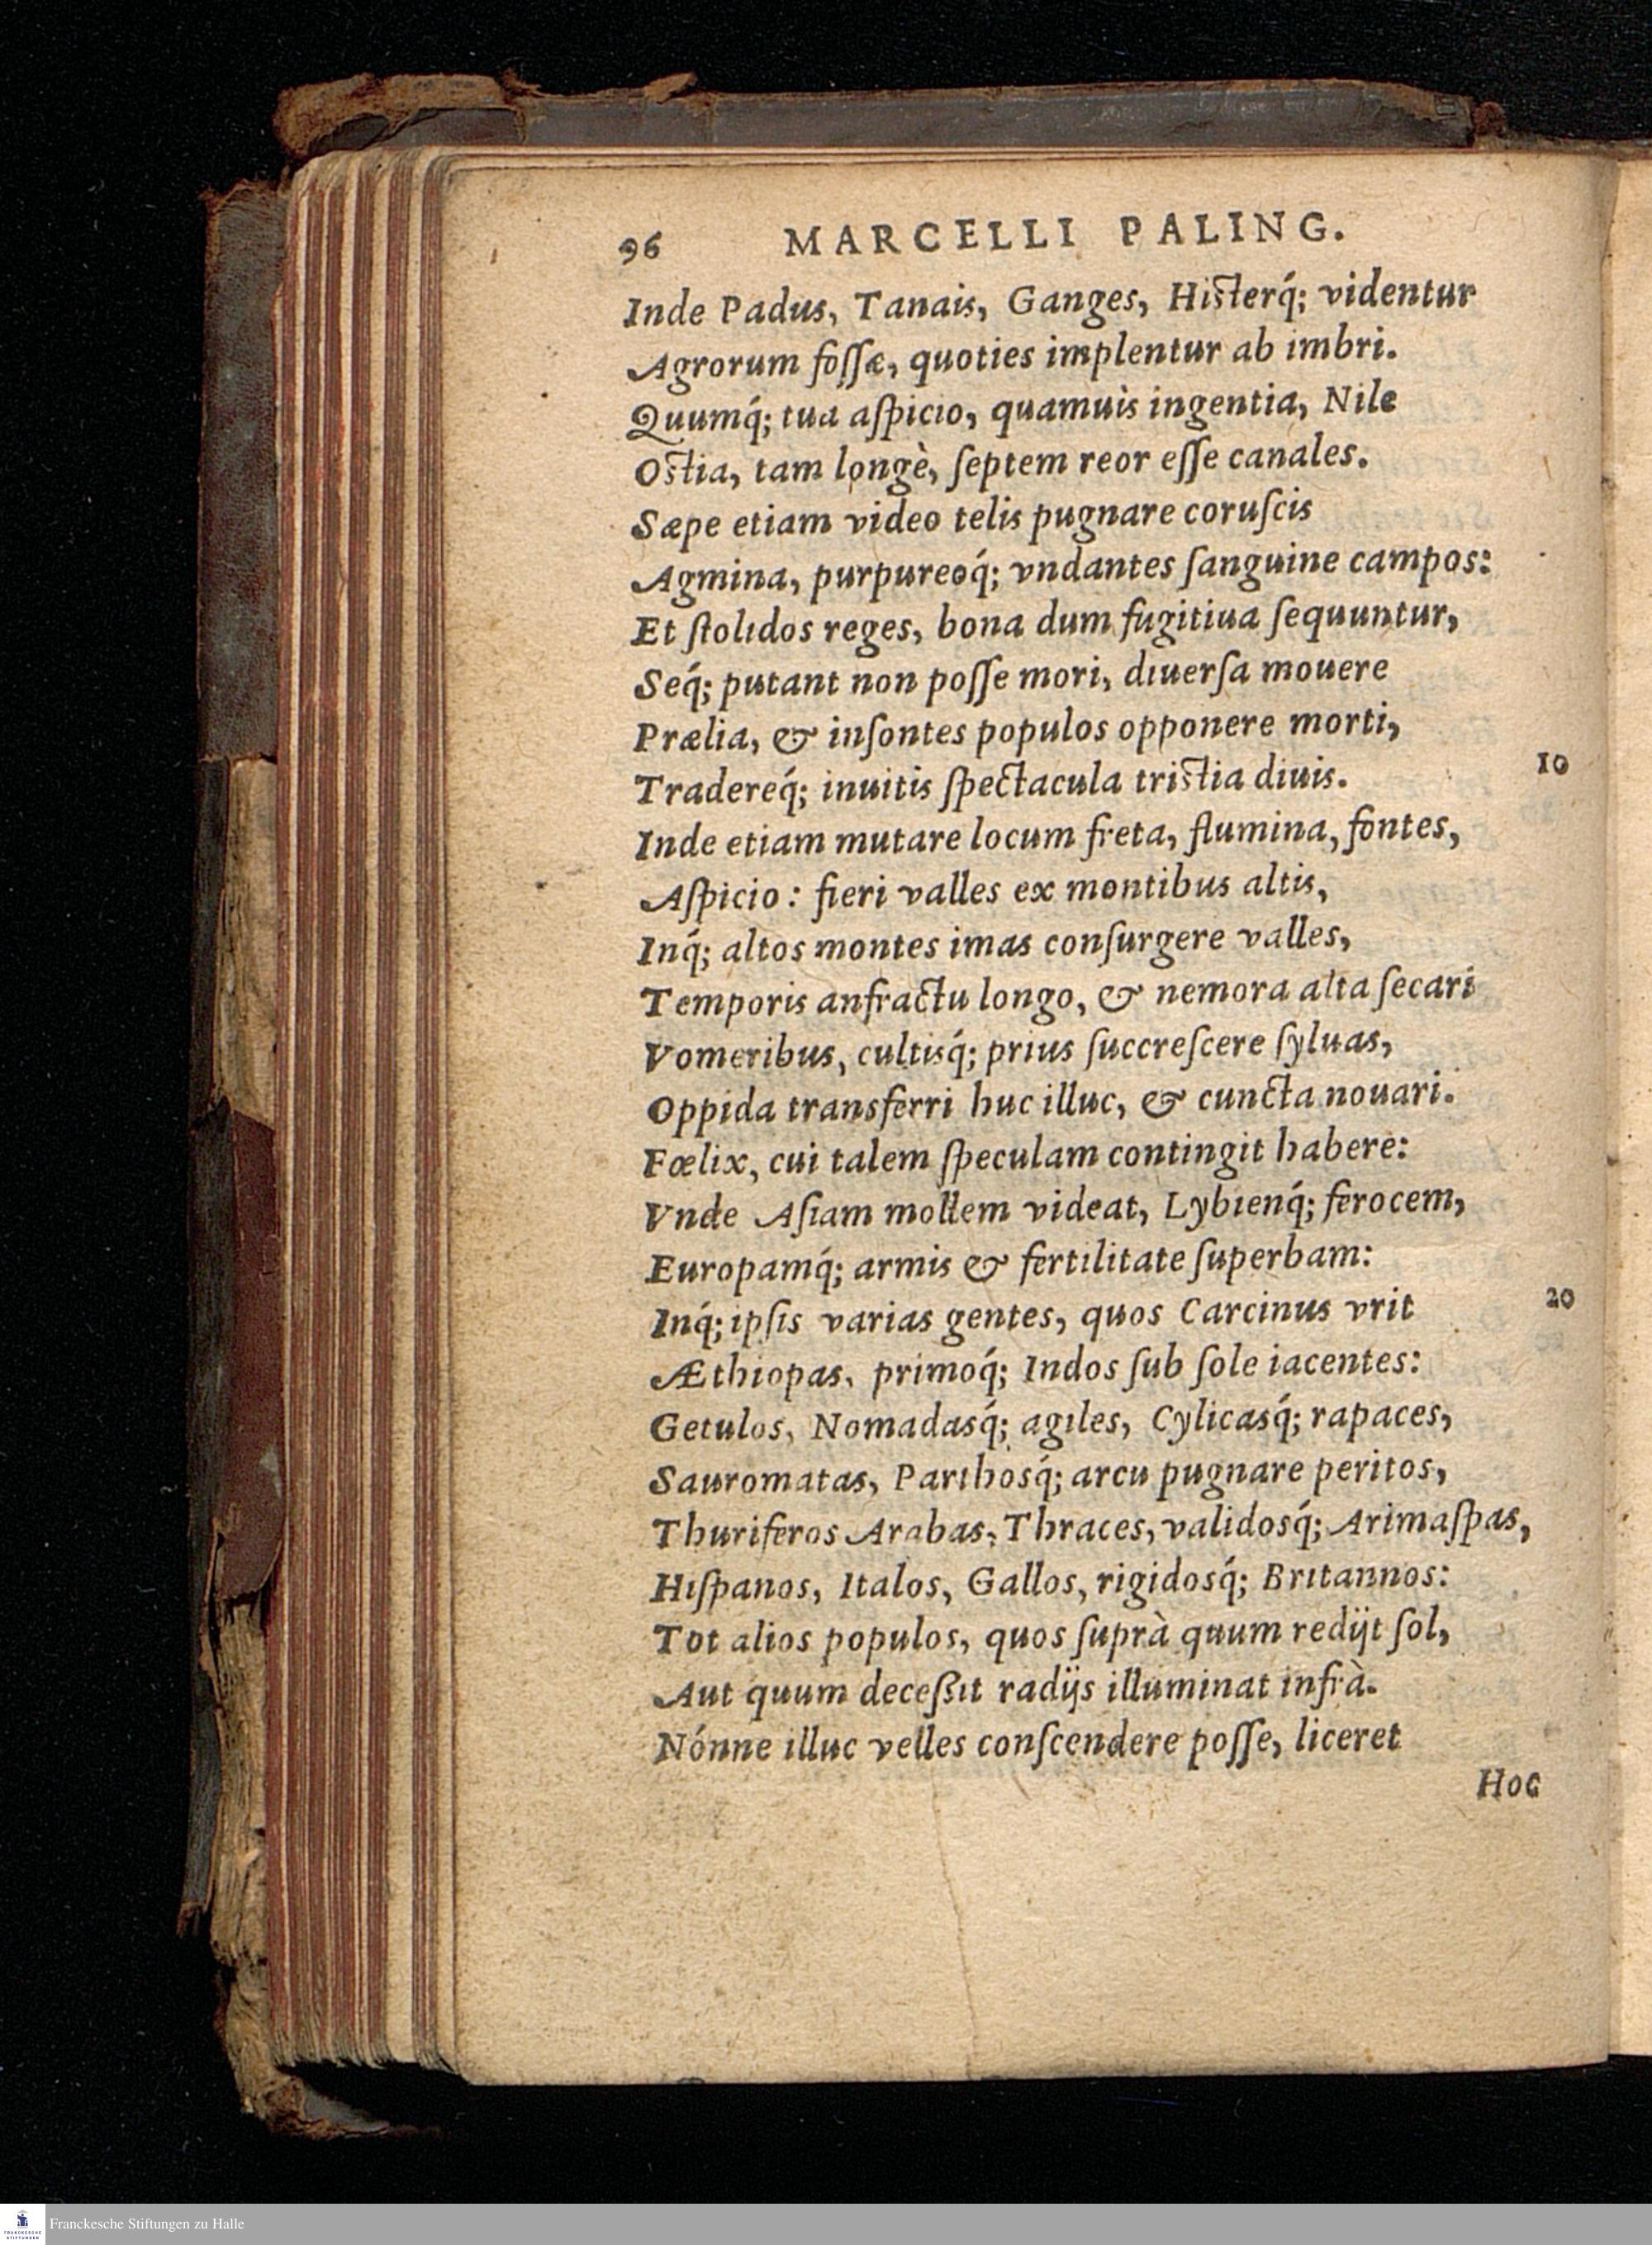 96 MARCELLI PALING.
Inde Padus, Tanais, Ganges, Histerq́; videntur
Agrorum foſſæ, quoties implentur ab imbri.
Quumq́; tua aſpicio, quamuis ingentia, Nile
Ostia, tam longè, ſeptem reor eſſe canales.
Sæpe etiam video telis pugnare coruſcis
Agmina, purpureoq́; vndantes ſanguine campos:
Et ſtolidos reges, bona dum fugitiua ſequuntur,
Seq́; putant non poſſe mori, diuerſa mouere
Prælia, & inſontes populos opponere morti,
Tradereq́; inuitis ſpectacula tristia diuis. 10
Inde etiam mutare locum freta, flumina, fontes,
Aſpicio: fieri valles ex montibus altis,
Inq́; altos montes imas conſurgere valles,
Temporis anfractu longo, & nemora alta ſecari
Vomeribus, cultisq́; prius ſuccreſcere ſyluas,
Oppida transferri huc illuc, & cuncta nouari.
Fœlix, cui talem ſpeculam contingit habere:
Vnde Aſiam mollem videat, Lybienq́; ferocem,
Europamq́; armis & fertilitate ſuperbam:
Inq́; ipſis varias gentes, quos Carcinus vrit 20
Æthiopas, primoq́; Indos ſub ſole iacentes:
Getulos, Nomadasq́; agiles, Cylicasq́; rapaces,
Sauromatas, Parthosq́; arcu pugnare peritos,
Thuriferos Arabas, Thraces, validosq́; Arimaſpas,
Hiſpanos, Italos, Gallos, rigidosq́; Britannos:
Tot alios populos, quos ſuprà quum redijt ſol,
Aut quum deceßit radijs illuminat infrà.
Nónne illuc velles conſcendere poſſe, liceret
Hoc
Franckesche Stiftungen zu Halle
FRANCKESCHE
STIFTUNGEN